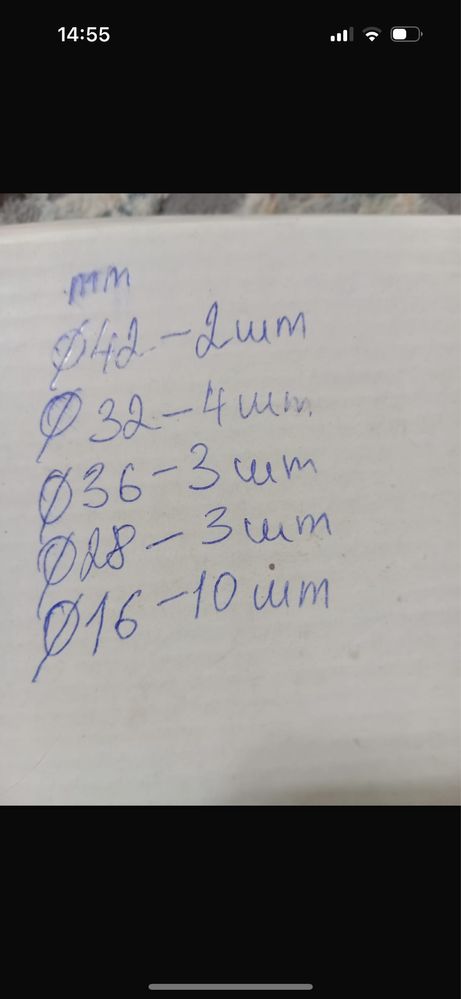 14:55
mm
Ø42 - 2шт
Ø 32 - 4шт
Ø36 - 3шт
Ø28 - 3шт
Ø16 - 10 шт